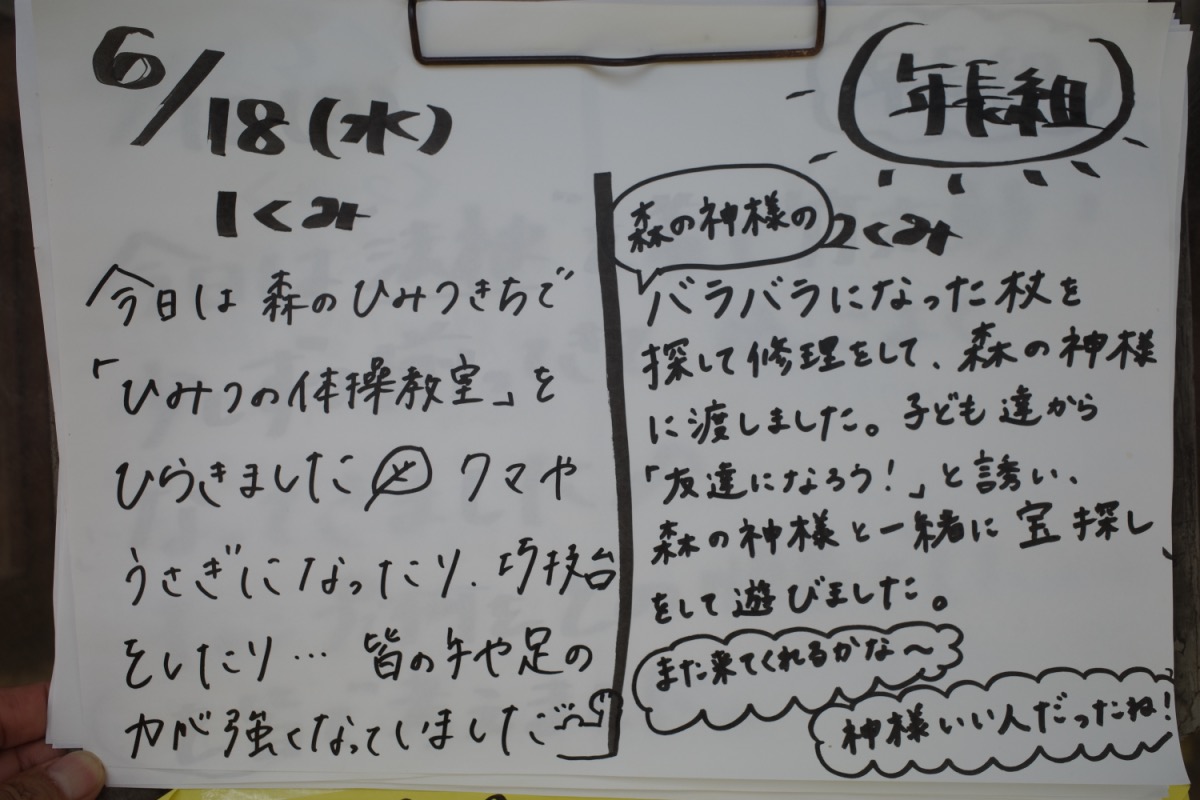 6/18(水)
年長組
1くみ
今日は森のひみつきちで
「ひみつの体操教室」を
ひらきました クマや
うさぎになったり、巧技台
をしたり… 皆の手や足の
力が強くなっていました
2くみ
森の神様の
バラバラになった杖を
探して修理をして、森の神様
に渡しました。子ども達から
「友達になろう!」と誘い、
森の神様と一緒に宝探し
をして遊びました。
また来てくれるかな〜
神様いい人だったね!